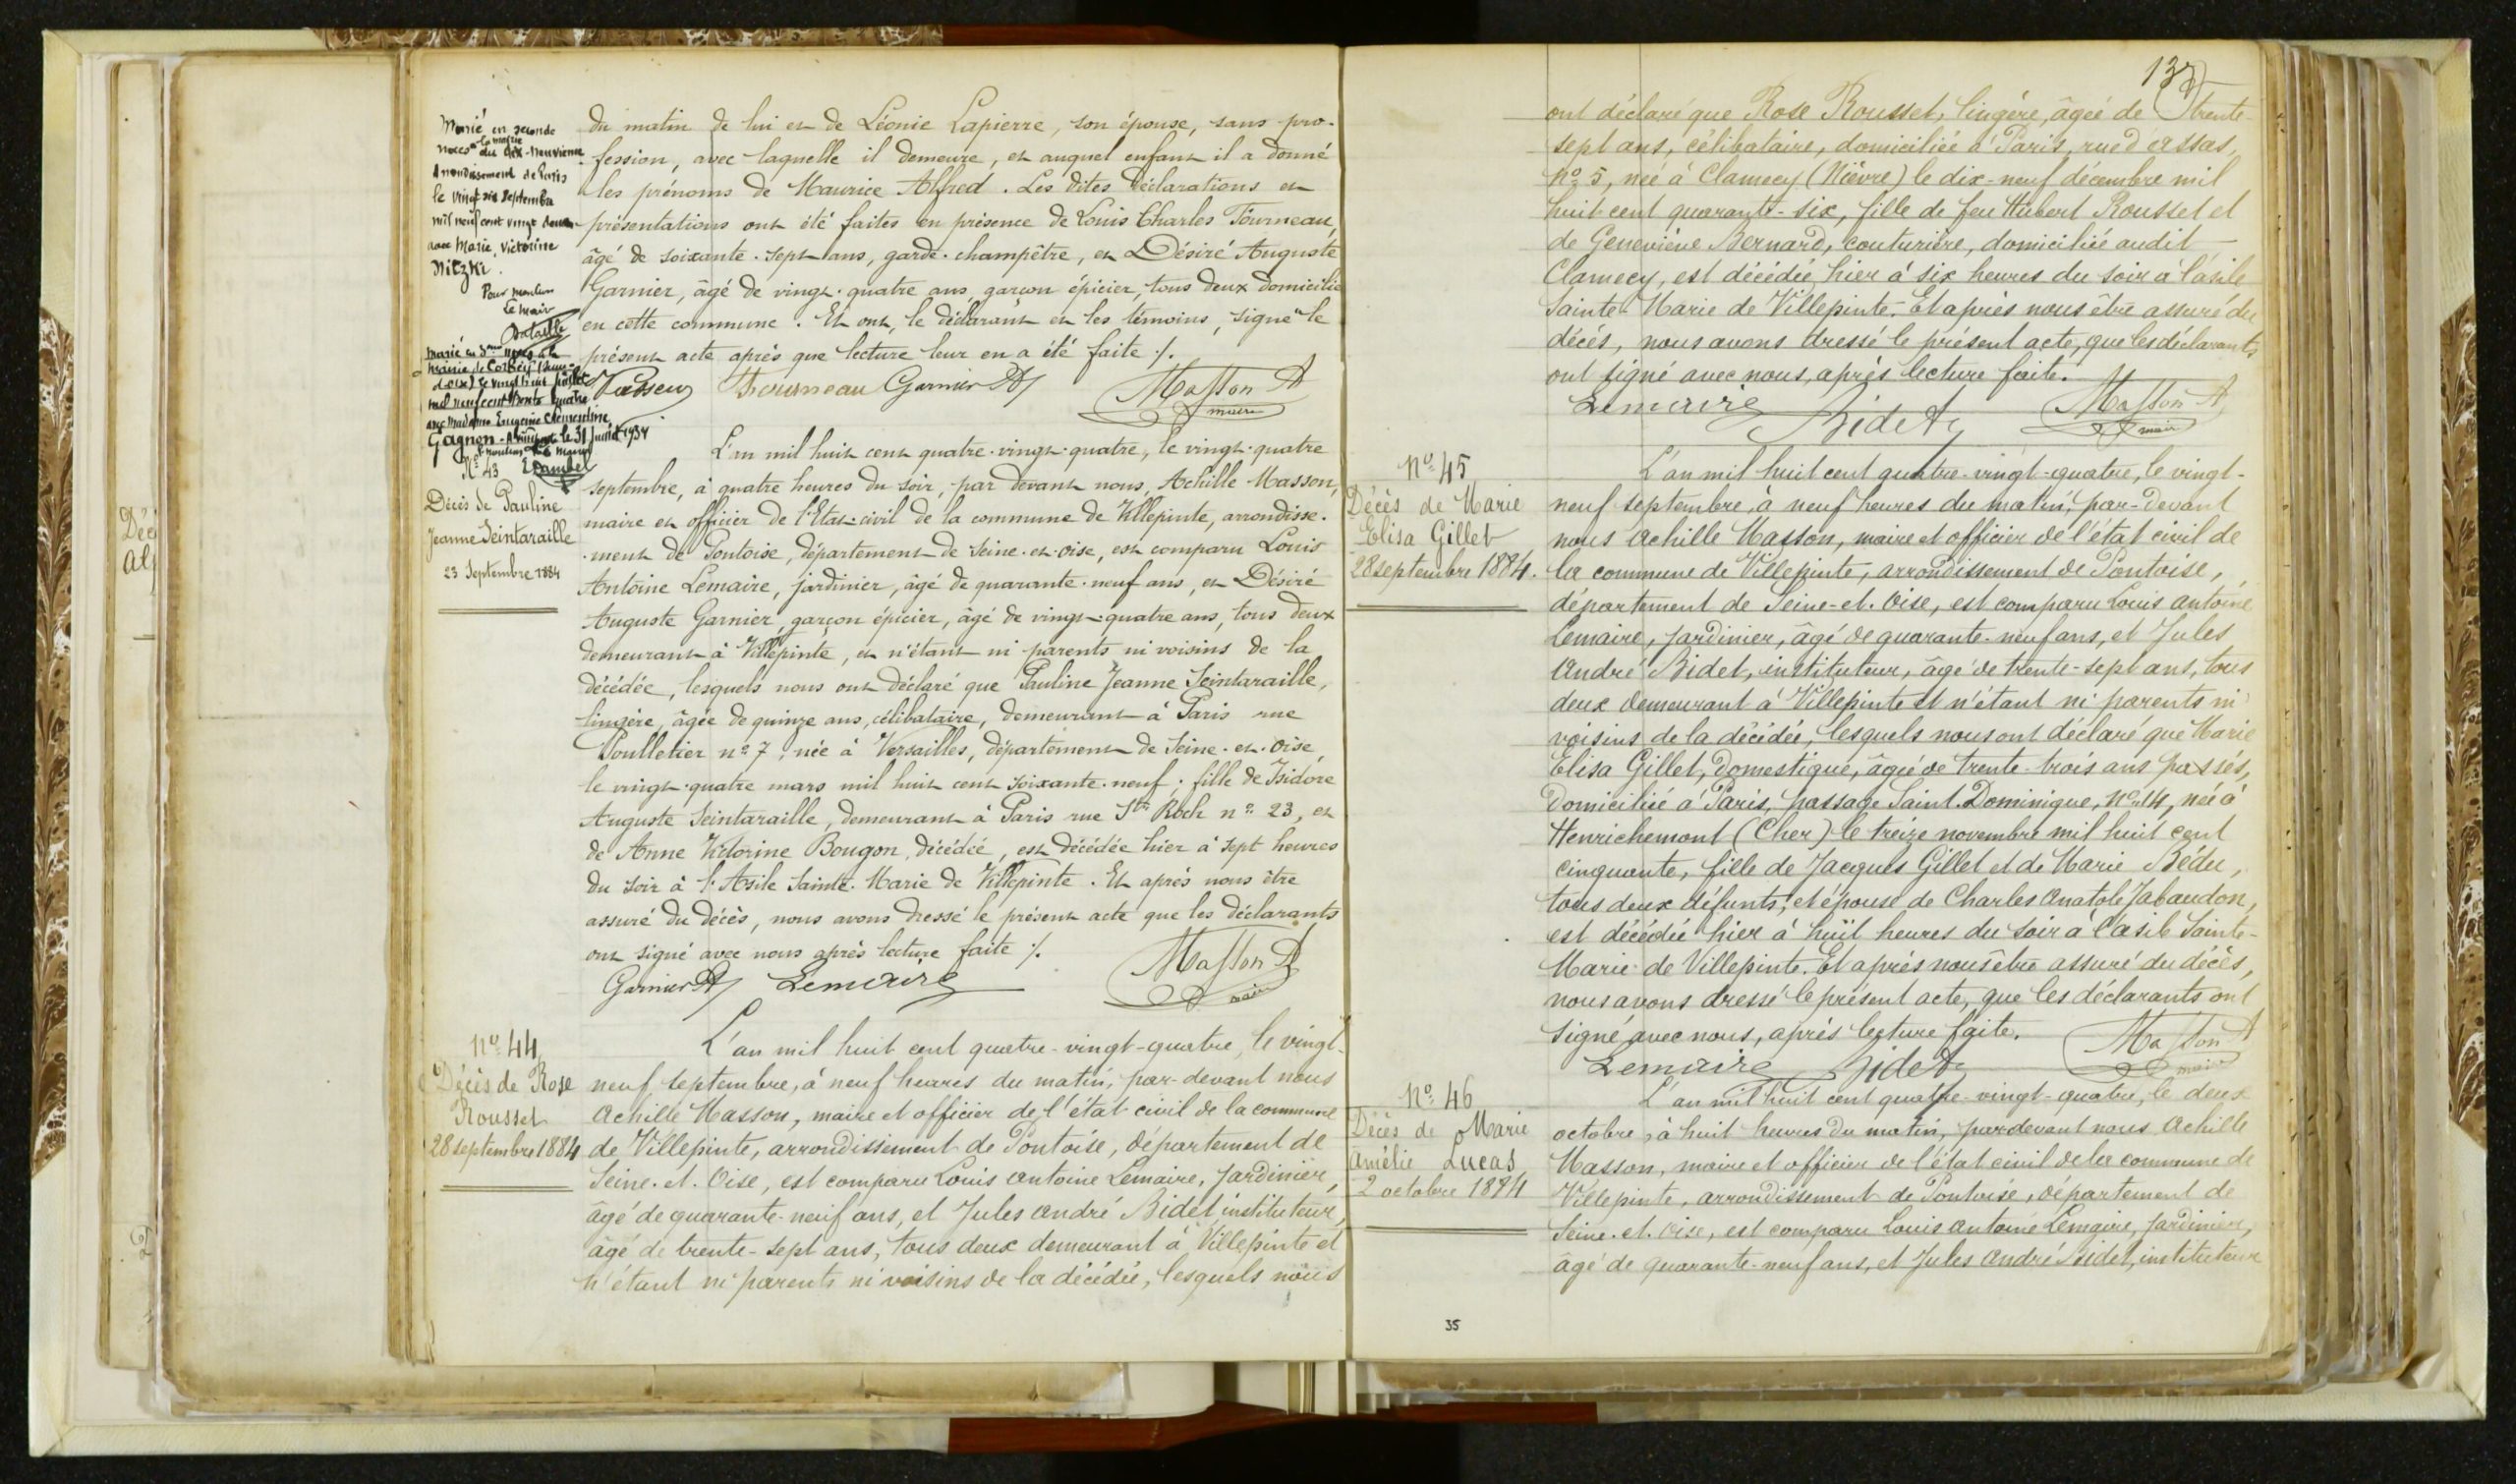 Marié en seconde
noces à la mairie
du dix-neuvième
Arrondissement de Paris
le vingt six septembre
mil neuf cent vingt deux
avec Marie, Victorine
Nitzki.
Pour mention
Le Maire
Bataille
Marié en 3me noces à la
mairie de
le vingt huit juillet
mil neuf cent trente quatre
avec Madame Eugénie Clémentine
Gagnon - le 31 Juillet 1934
du matin de lui et de Léonie Lapierre, son épouse, sans pro-
fession, avec laquelle il demeure, et auquel enfant il a donné
les prénoms de Maurice Alfred. Les dites déclarations et
présentations ont été faites en présence de Louis Charles Tourneau,
âgé de soixante-sept ans, garde-champêtre, et Désiré Auguste
Garnier, âgé de vingt-quatre ans, garçon épicier, tous deux domiciliés
en cette commune. Et ont, le déclarant et les témoins, signé le
présent acte après que lecture leur en a été faite ./.
Tourneau Garnier DA Masson A
maire
No 43
Décès de Pauline
Jeanne Seintaraille
23 Septembre 1884
L'an mil huit cent quatre-vingt-quatre, le vingt-quatre
septembre, à quatre heures du soir, par devant nous, Achille Masson,
maire et officier de l'Etat-civil de la commune de Villepinte, arrondisse-
ment de Pontoise, département de Seine-et-Oise, est comparu Louis
Antoine Lemaire, jardinier, âgé de quarante-neuf ans, et Désiré
Auguste Garnier, garçon épicier, âgé de vingt-quatre ans, tous deux
demeurant à Villepinte, et n'étant ni parents ni voisins de la
décédée, lesquels nous ont déclaré que Pauline Jeanne Seintaraille,
lingère, âgée de quinze ans, célibataire, demeurant à Paris rue
Poulletier no 7, née à Versailles, département de Seine-et-Oise,
le vingt-quatre mars mil huit cent soixante-neuf; fille de Isidore
Auguste Seintaraille, demeurant à Paris rue St Roch no 23, et
de Anne Victorine Bougon, décédée, est décédée hier à sept heures
du soir à l'Asile Sainte-Marie de Villepinte. Et après nous être
assuré du décès, nous avons dressé le présent acte que les déclarants
ont signé avec nous après lecture faite ./.
Garnier DA Lemaire Masson A
maire
No 44
Décès de Rose
Rousset
28 septembre 1884
L'an mil huit cent quatre-vingt-quatre, le vingt-
neuf septembre, à neuf heures du matin, par-devant nous
Achille Masson, maire et officier de l'état civil de la commune
de Villepinte, arrondissement de Pontoise, département de
Seine-et-Oise, est comparu Louis Antoine Lemaire, Jardinier,
âgé de quarante-neuf ans, et Jules André Bidet instituteur,
âgé de trente-sept ans, tous deux demeurant à Villepinte et
n'étant ni parents ni voisins de la décédée, lesquels nous
137
ont déclaré que Rose Rousset, lingère, âgée de trente-
sept ans, célibataire, domiciliée à Paris, rue d'Assas,
No 5, née à Clamecy (Nièvre) le dix-neuf décembre mil
huit cent quarante-six, fille de feu Hubert Rousset et
de Geneviève Bernard, couturière, domiciliée audit
Clamecy, est décédée hier à six heures du soir à l'asile
Sainte-Marie de Villepinte. Et après nous être assuré du
décès, nous avons dressé le présent acte, que les déclarants
ont signé avec nous, après lecture faite.
Lemaire Bidet Masson A
maire
No 45
Décès de Marie
Elisa Gillet
28 septembre 1884.
L'an mil huit cent quatre-vingt-quatre, le vingt-
neuf septembre, à neuf heures du matin, par-devant
nous Achille Masson, maire et officier de l'état civil de
la commune de Villepinte, arrondissement de Pontoise,
département de Seine-et-Oise, est comparu Louis Antoine
Lemaire, Jardinier, âgé de quarante-neuf ans, et Jules
André Bidet, instituteur, âgé de trente-sept ans, tous
deux demeurant à Villepinte et n'étant ni parents ni
voisins de la décédée, lesquels nous ont déclaré que Marie
Elisa Gillet, Domestique, âgée de trente-trois ans passés,
Domiciliée à Paris, passage Saint-Dominique, No 14, née à
Henrichemont (Cher) le treize novembre mil huit cent
cinquante, fille de Jacques Gillet et de Marie Bédu,
tous deux défunts, et épouse de Charles Anatole Jabaudon,
est décédée hier à huit heures du soir à l'asile Sainte-
Marie de Villepinte. Et après nous être assuré du décès,
nous avons dressé le présent acte, que les déclarants ont
signé avec nous, après lecture faite.
Lemaire Bidet Masson A
maire
No 46
Décès de Marie
Amélie Lucas
2 octobre 1884
L'an mil huit cent quatre-vingt-quatre, le deux
octobre, à huit heures du matin, par devant nous Achille
Masson, maire et officier de l'état civil de la commune de
Villepinte, arrondissement de Pontoise, département de
Seine-et-Oise, est comparu Louis Antoine Lemaire, Jardinier,
âgé de quarante-neuf ans, et Jules André Bidet, instituteur
35